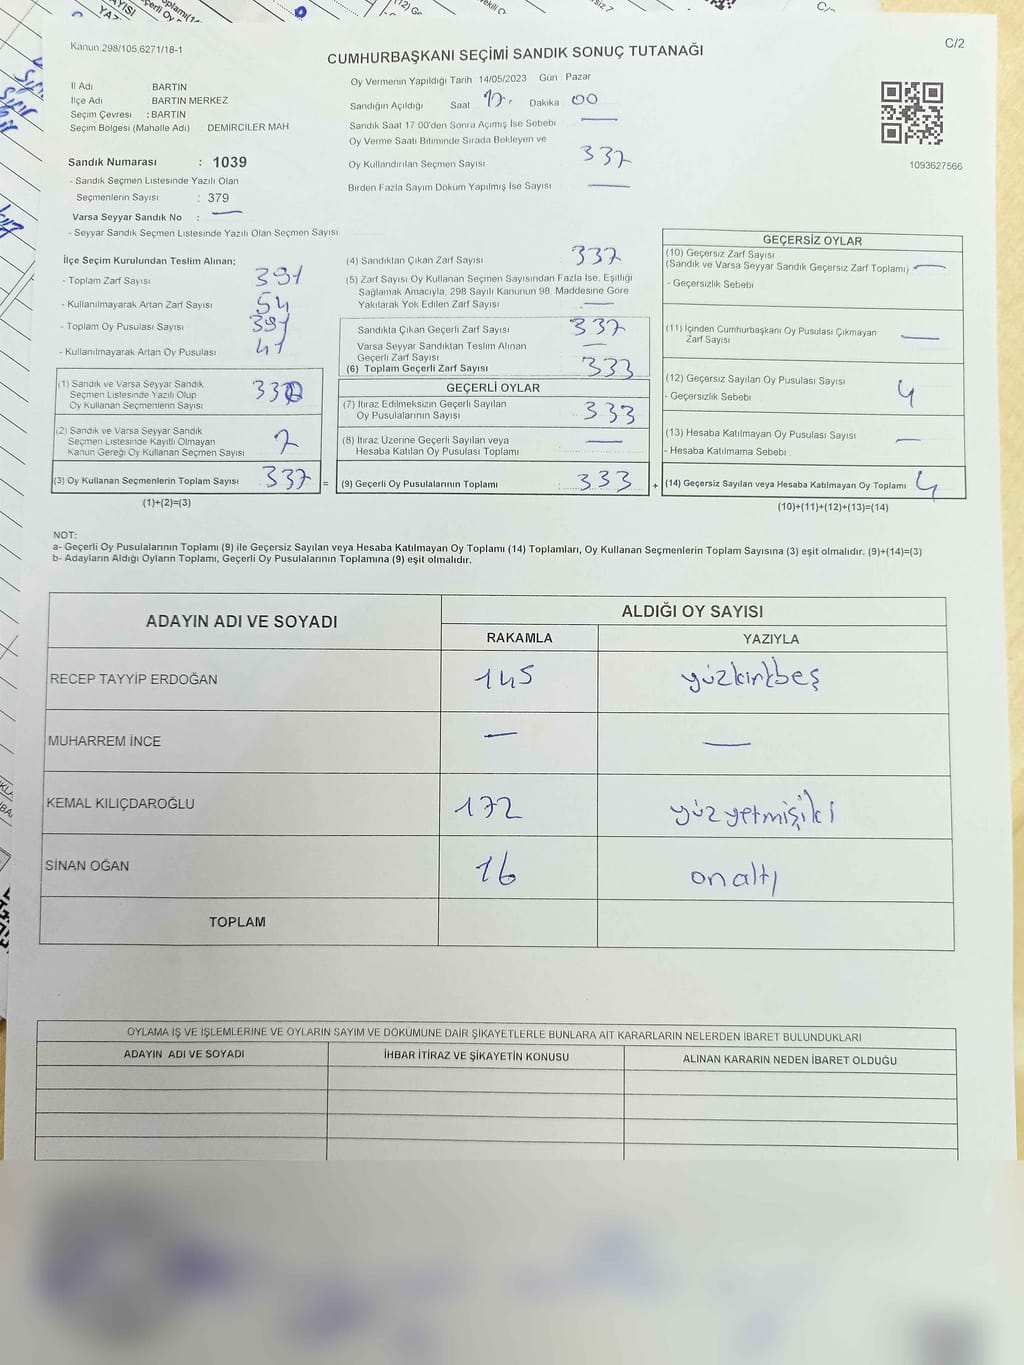 Kanun.298/105,6271/18-1
CUMHURBAŞKANI SEÇİMİ SANDIK SONUÇ TUTANAĞI
C/2
İl Adı BARTIN
İlçe Adı BARTIN MERKEZ
Seçim Çevresi : BARTIN
Seçim Bölgesi (Mahalle Adı) DEMİRCİLER MAH
Sandık Numarası : 1039
- Sandık Seçmen Listesinde Yazılı Olan
Seçmenlerin Sayısı : 379
Varsa Seyyar Sandık No : —
- Seyyar Sandık Seçmen Listesinde Yazılı Olan Seçmen Sayısı
Oy Vermenin Yapıldığı Tarih 14/05/2023 Gün Pazar
Sandığın Açıldığı Saat 17. Dakika 00
Sandık Saat 17 00'den Sonra Açımış İse Sebebi —
Oy Verme Saati Bitiminde Sırada Bekleyen ve
Oy Kullandırılan Seçmen Sayısı 337
Birden Fazla Sayım Döküm Yapılmış İse Sayısı —
1093627566
İlçe Seçim Kurulundan Teslim Alınan;
- Toplam Zarf Sayısı 391
- Kullanılmayarak Artan Zarf Sayısı 54
- Toplam Oy Pusulası Sayısı 391
- Kullanılmayarak Artan Oy Pusulası 41
(1) Sandık ve Varsa Seyyar Sandık
Seçmen Listesinde Yazılı Olup
Oy Kullanan Seçmenlerin Sayısı
(2) Sandık ve Varsa Seyyar Sandık
Seçmen Listesinde Kayıtlı Olmayan
Kanun Gereği Oy Kullanan Seçmen Sayısı 7
(3) Oy Kullanan Seçmenlerin Toplam Sayısı 337 =
(1)+(2)=(3)
(4) Sandıktan Çıkan Zarf Sayısı 337
(5) Zarf Sayısı Oy Kullanan Seçmen Sayısından Fazla İse, Eşitliği
Sağlamak Amacıyla, 298 Sayılı Kanunun 98. Maddesine Göre
Yakılarak Yok Edilen Zarf Sayısı —
Sandıkta Çıkan Geçerli Zarf Sayısı 337
Varsa Seyyar Sandıktan Teslim Alınan
Geçerli Zarf Sayısı —
(6) Toplam Geçerli Zarf Sayısı 333
GEÇERLİ OYLAR
(7) İtiraz Edilmeksizin Geçerli Sayılan
Oy Pusulalarının Sayısı 333
(8) İtiraz Üzerine Geçerli Sayılan veya
Hesaba Katılan Oy Pusulası Toplamı —
(9) Geçerli Oy Pusulalarının Toplamı : 333 +
GEÇERSİZ OYLAR
(10) Geçersiz Zarf Sayısı
(Sandık ve Varsa Seyyar Sandık Geçersiz Zarf Toplamı) —
- Geçersizlik Sebebi
(11) İçinden Cumhurbaşkanı Oy Pusulası Çıkmayan
Zarf Sayısı —
(12) Geçersiz Sayılan Oy Pusulası Sayısı 4
- Geçersizlik Sebebi
(13) Hesaba Katılmayan Oy Pusulası Sayısı —
- Hesaba Katılmama Sebebi
(14) Geçersiz Sayılan veya Hesaba Katılmayan Oy Toplamı 4
(10)+(11)+(12)+(13)=(14)
NOT:
a- Geçerli Oy Pusulalarının Toplamı (9) ile Geçersiz Sayılan veya Hesaba Katılmayan Oy Toplamı (14) Toplamları, Oy Kullanan Seçmenlerin Toplam Sayısına (3) eşit olmalıdır. (9)+(14)=(3)
b- Adayların Aldığı Oyların Toplamı, Geçerli Oy Pusulalarının Toplamına (9) eşit olmalıdır.
ADAYIN ADI VE SOYADI ALDIĞI OY SAYISI
RAKAMLA YAZIYLA
RECEP TAYYİP ERDOĞAN 145 yüzkırkbeş
MUHARREM İNCE — —
KEMAL KILIÇDAROĞLU 172 yüzyetmişiki
SİNAN OĞAN 16 onaltı
TOPLAM
OYLAMA İŞ VE İŞLEMLERİNE VE OYLARIN SAYIM VE DÖKÜMÜNE DAİR ŞİKAYETLERLE BUNLARA AİT KARARLARIN NELERDEN İBARET BULUNDUKLARI
ADAYIN ADI VE SOYADI İHBAR İTİRAZ VE ŞİKAYETİN KONUSU ALINAN KARARIN NEDEN İBARET OLDUĞU